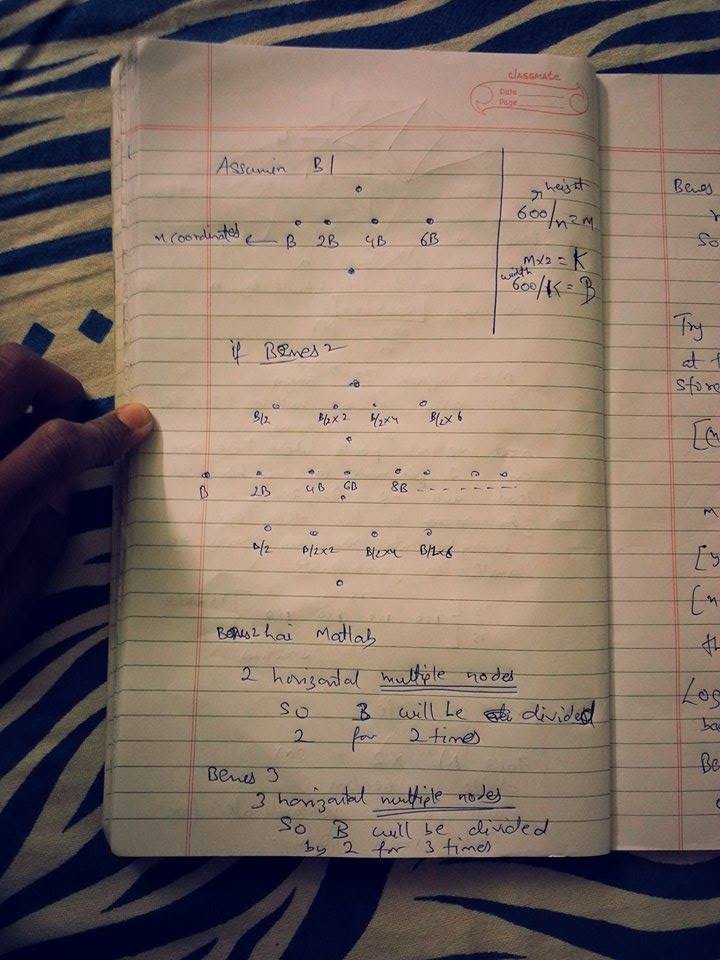 classmate
Date
Page
Assumin B1
B 2B 4B 6B
height
600/n=m
M×2 = K
width
600/K = B
if Benes 2
B/2 B/2×2 B/2×4 B/2×6
B 2B 4B 6B 8B - - - - - - -
B/2 B/2×2 B/2×4 B/2×6
Benes2 hai Matlab
2 horizontal multiple nodes
so B will be divided
2 for 2 times
Benes 3
3 horizontal multiple nodes
So B will be divided
by 2 for 3 times
Benes
So
Try
at
store
m
[y
[n
Be